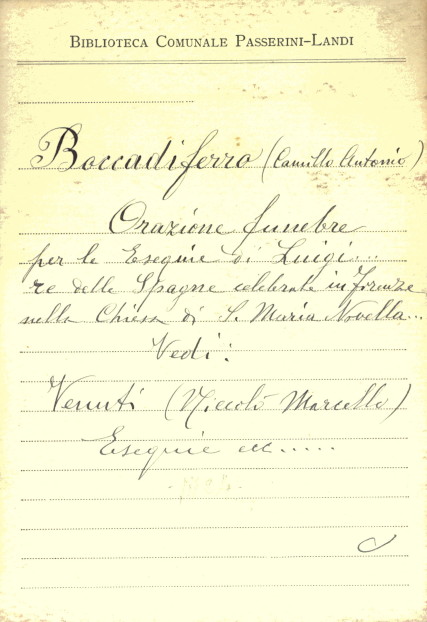 BIBLIOTECA COMUNALE PASSERINI-LANDI
Boccadiferro (Camillo Antonio)
Orazione funebre
per le Esequie di Luigi...
re delle Spagne celebrate in Firenze
nella Chiesa di S. Maria Novella...
Vedi:
Venuti (Niccolò Marcello)
Esequie ecc.....